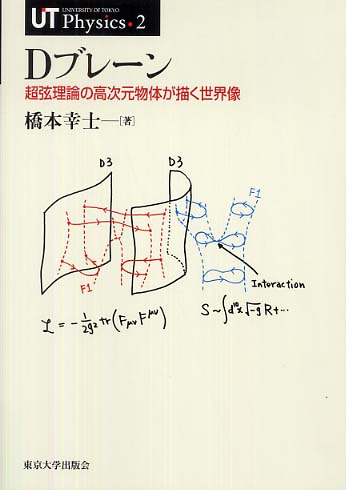 UT
UNIVERSITY OF TOKYO
Physics・2
Dブレーン
超弦理論の高次元物体が描く世界像
橋本幸士―[著]
D3
D3
F1
F1
Interaction
ℒ = -1/2g² tr(FμνF^μν)
S~∫d¹⁰x√-g R+…
東京大学出版会